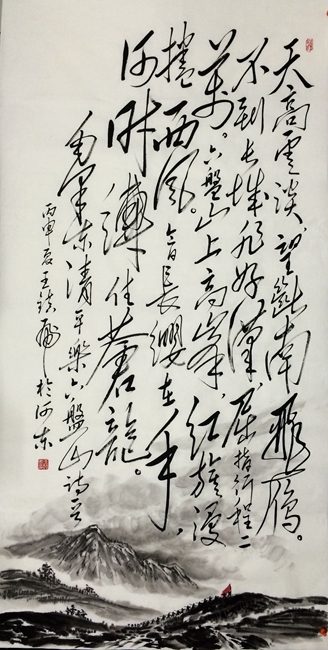 天高雲淡，望斷南飛雁。
不到长城非好漢，屈指行程二
萬。六盤山上高峰，红旗漫
捲西風。今日長纓在手，
何时縛住蒼龍。
毛泽东清平樂六盤山詩
丙申夏王於河东